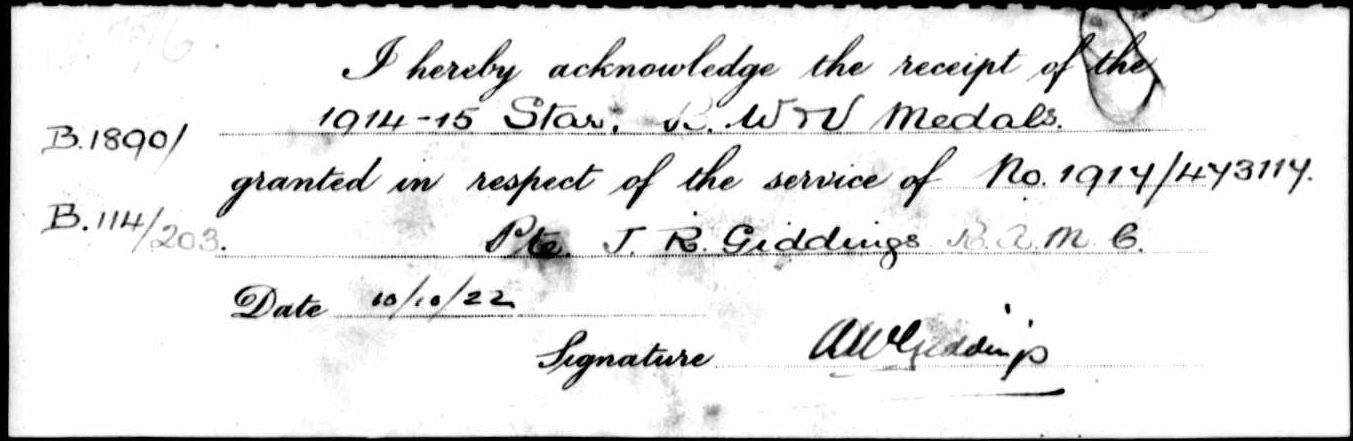 I hereby acknowledge the receipt of the
1914-15 Star. B. W & V Medals.
B.18901
granted in respect of the service of No. 1917/473117.
B.114/203.
Pte. J. R. Giddings R.A.M.C.
Date 10/10/22
Signature AWGiddings